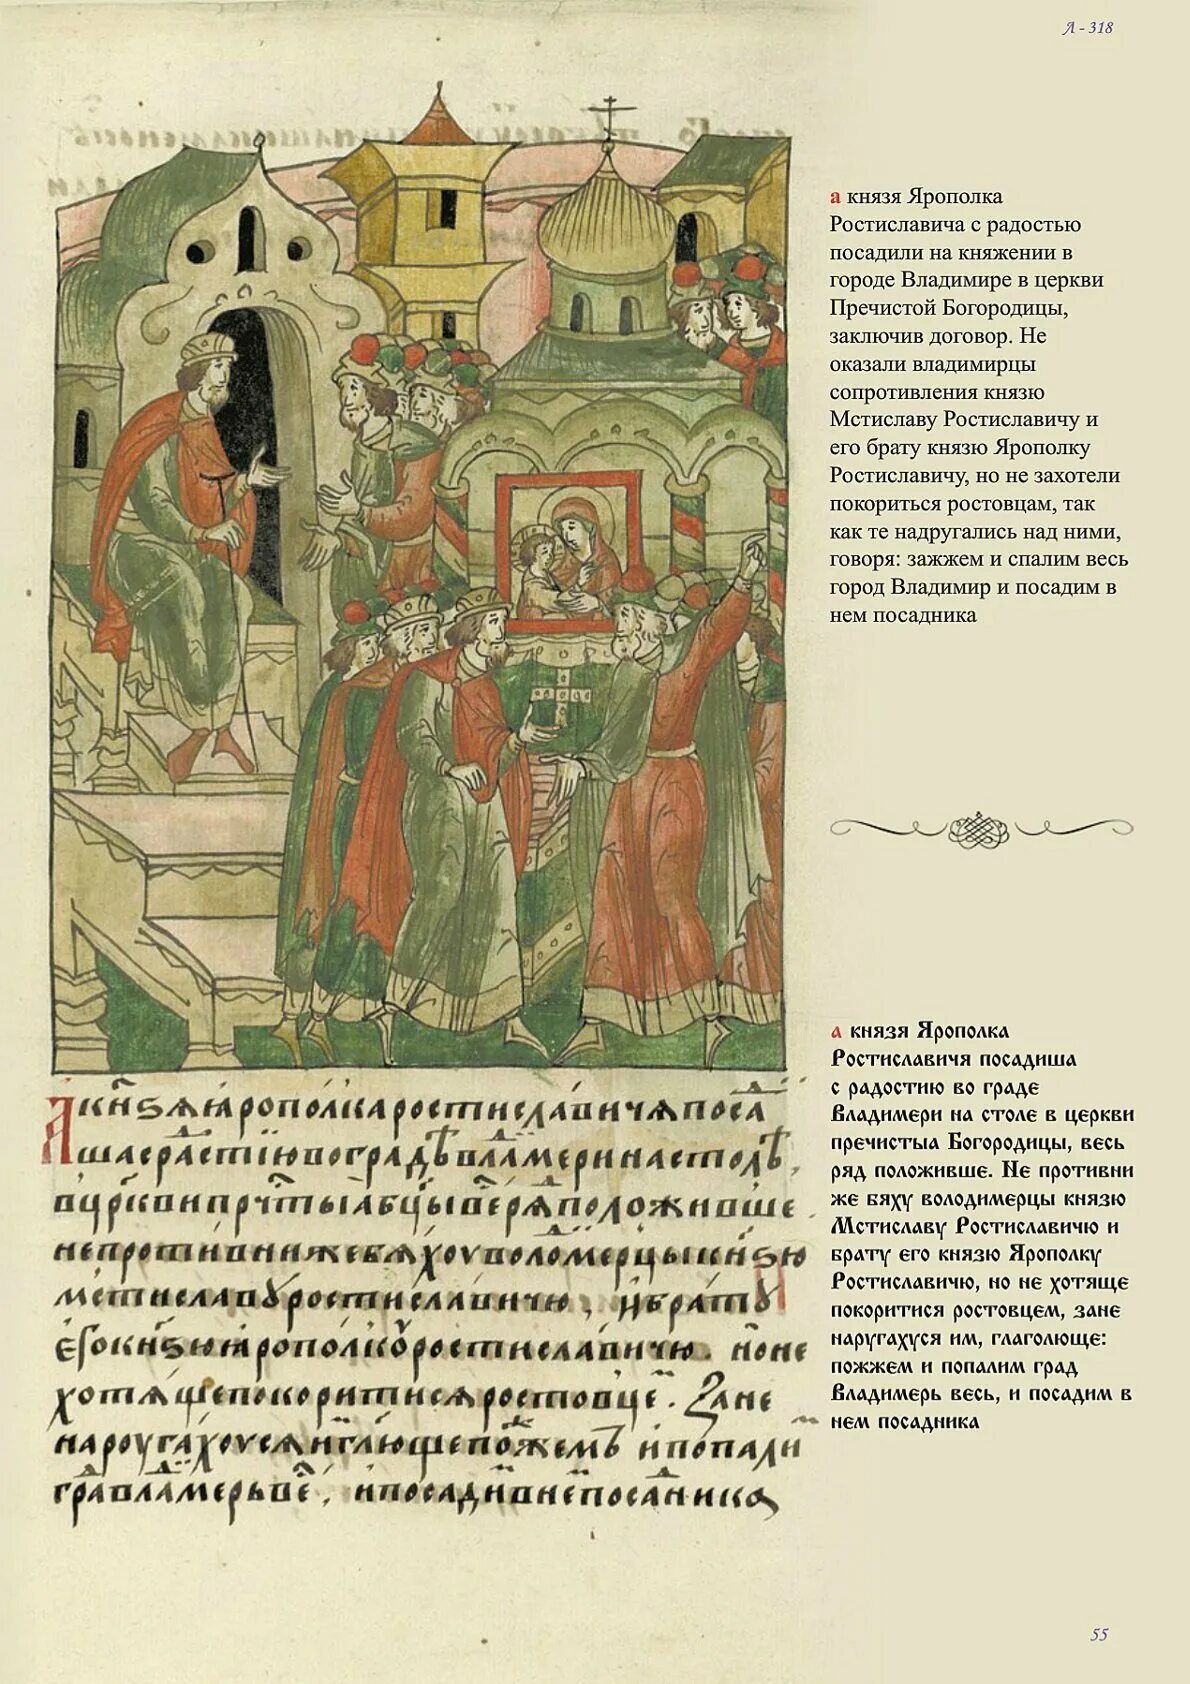 Л - 318
а князя Ярополка
Ростиславича с радостью
посадили на княжении в
городе Владимире в церкви
Пречистой Богородицы,
заключив договор. Не
оказали владимирцы
сопротивления князю
Мстиславу Ростиславичу и
его брату князю Ярополку
Ростиславичу, но не захотели
покориться ростовцам, так
как те надругались над ними,
говоря: зажжем и спалим весь
город Владимир и посадим в
нем посадника
акн҃ѕѧꙗрополкаростиславичѧпоса
шасрастїювоградѣвламеринастолѣ
вцр҃квипрч҃тыѧбц҃ывеⷭ҇рѧположивше
непротивнижебѧхоуволомерцыкн҃ѕю
мстиславꙋростиславичю, ибратꙋ
егокн҃ѕюꙗрополкꙋростиславичю. ноне
хотѧщепокоритисѧростовце. Зане
нароугахоусѧигл҃ющепожемъ ипопали
гравламерьве, ипосадивнепосаника
а князя Ярополка
Ростиславичя посадиша
с радостию во граде
Владимери на столе в церкви
пречистыа Богородицы, весь
ряд положивше. Не противни
же бяху володимерцы князю
Мстиславу Ростиславичю и
брату его князю Ярополку
Ростиславичю, но не хотяще
покоритися ростовцем, зане
наругахуся им, глаголюще:
пожжем и попалим град
Владимерь весь, и посадим в
нем посадника
55